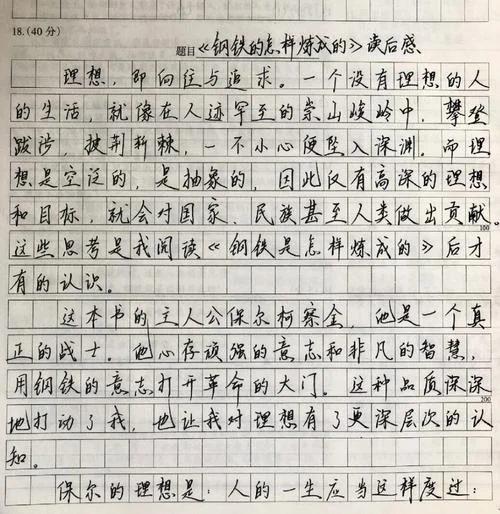 18.(40分)
题目《钢铁的怎样炼成的》读后感
理想，即向往与追求。一个没有理想的人
的生活，就像在人迹罕至的崇山峻岭中，攀登
跋涉，披荆斩棘，一不小心便坠入深渊。而理
想是空泛的，是抽象的，因此仅有高深的理想
和目标，就会对国家、民族甚至人类做出贡献。
100
这些思考是我阅读《钢铁是怎样炼成的》后才
有的认识。
这本书的主人公保尔柯察金，他是一个真
正的战士。他心存顽强的意志和非凡的智慧，
用钢铁的意志打开革命的大门。这种品质深深
地打动了我，也让我对理想有了更深层次的认
200
知。
保尔的理想是：人的一生应当这样度过：